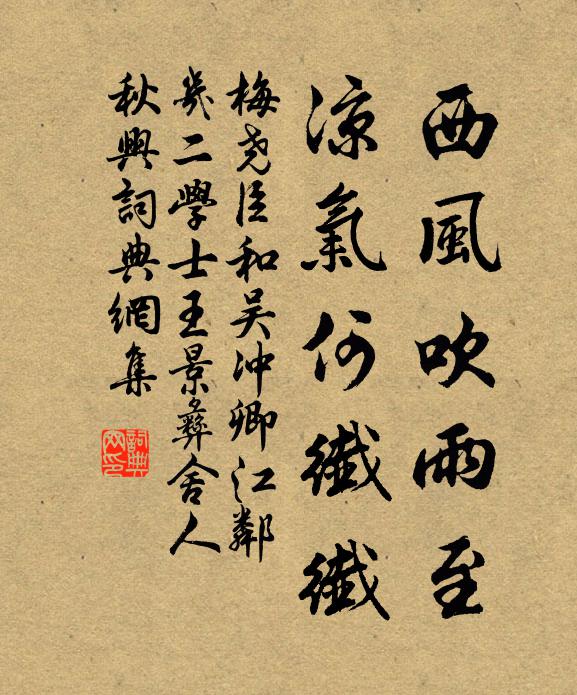 西風吹雨至
涼氣何纖纖
梅堯臣和吳冲卿江鄰
幾二學士王景彝舍人
秋興詞典網集
詞典网印